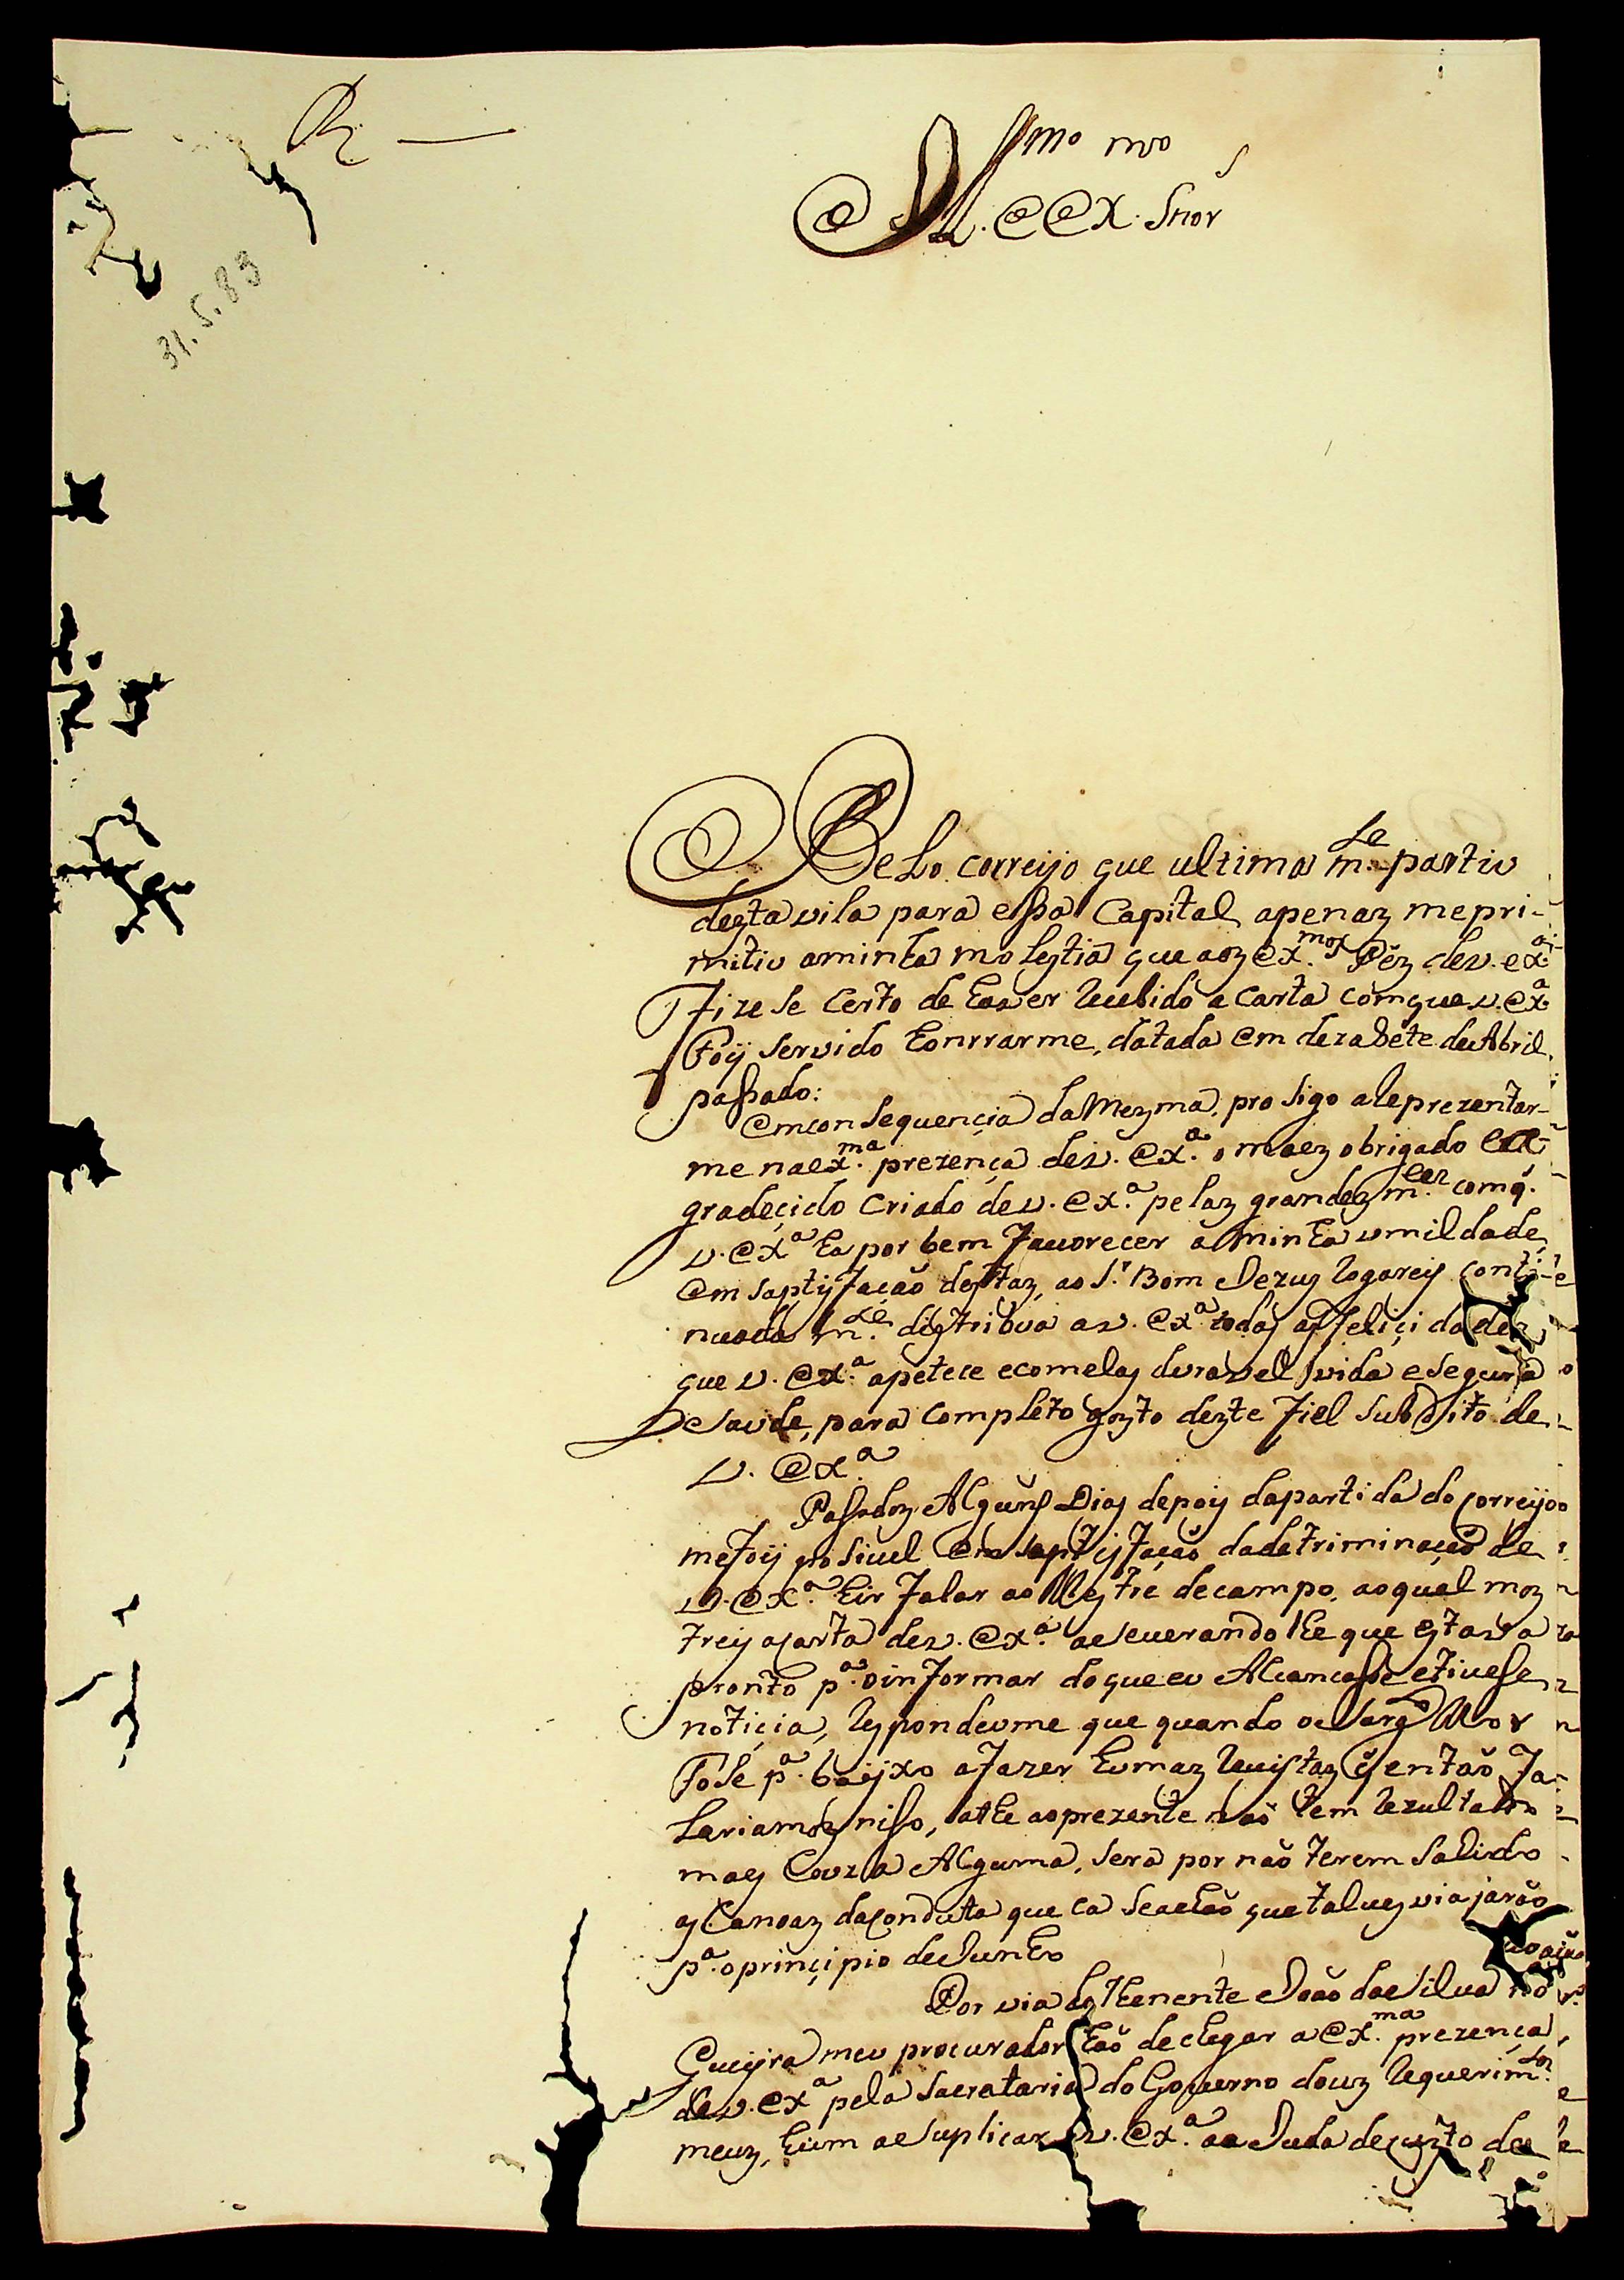 R
31.5.83
Ill.mo e Ex.mo Snor
Pelo correyo que ultima m.te partio
desta vila para essa Capital apenaz mepri-
mitio aminha molestia que aoz Ex.mos Péz de v. ex.a
fizese Certo de haver recebido a Carta comque v. Ex.a
foij servido honrrarme, datada em dezasete de Abril
passado:
Emconsequencia da Mezma, prosigo a reprezentar-
me naex.ma prezença de v. Ex.a o maez obrigado e a-
gradecido Criado de v. Ex.a pelaz grandez m.ces comq.
v. Ex.a ha por bem favorecer a Minha umildade,
em saptisfação destaz, ao S.r Bom Jezuz rogarey conti-
nuada m.te distribua a v. Ex.a todas as felicidadez
que v. Ex.a apetece ecomelas duravel vida e segura
Saude, para completo gozto dezte fiel subdito de
v. Ex.a
Passadoz Alguns Dias depois dapartida do correyo
mefoij posivel em saptisfação dadetriminação de
v. Ex.a hir falar ao Mestre decampo, aoqual moz
trey acarta de v. Ex.a aseverandolhe que estava
pronto p.a oinformar doque eu Alcancasse etivese
noticia, respondeume que quando o Sarg.to Mor
fose p.a baijxo afazer humaz revistaz q entaõ fa-
lariamoz nisso, athe aoprezente naõ tem rezultado
mais Couza Alguma, será por naõ terem sahido
as Canoaz daconduta que ca seachaõ quetalvez viajaráõ
p.a oprincipio de Junho
Por via do Thenente Joaõ da Silva no
Gueijra meu procurador haõ dechegar a Ex.ma prezença
de v. Ex.a pela Sacretaria do Governo douz requerim.tos
meuz, hum a suplicar a v. Ex.a a ajuda decuzto de